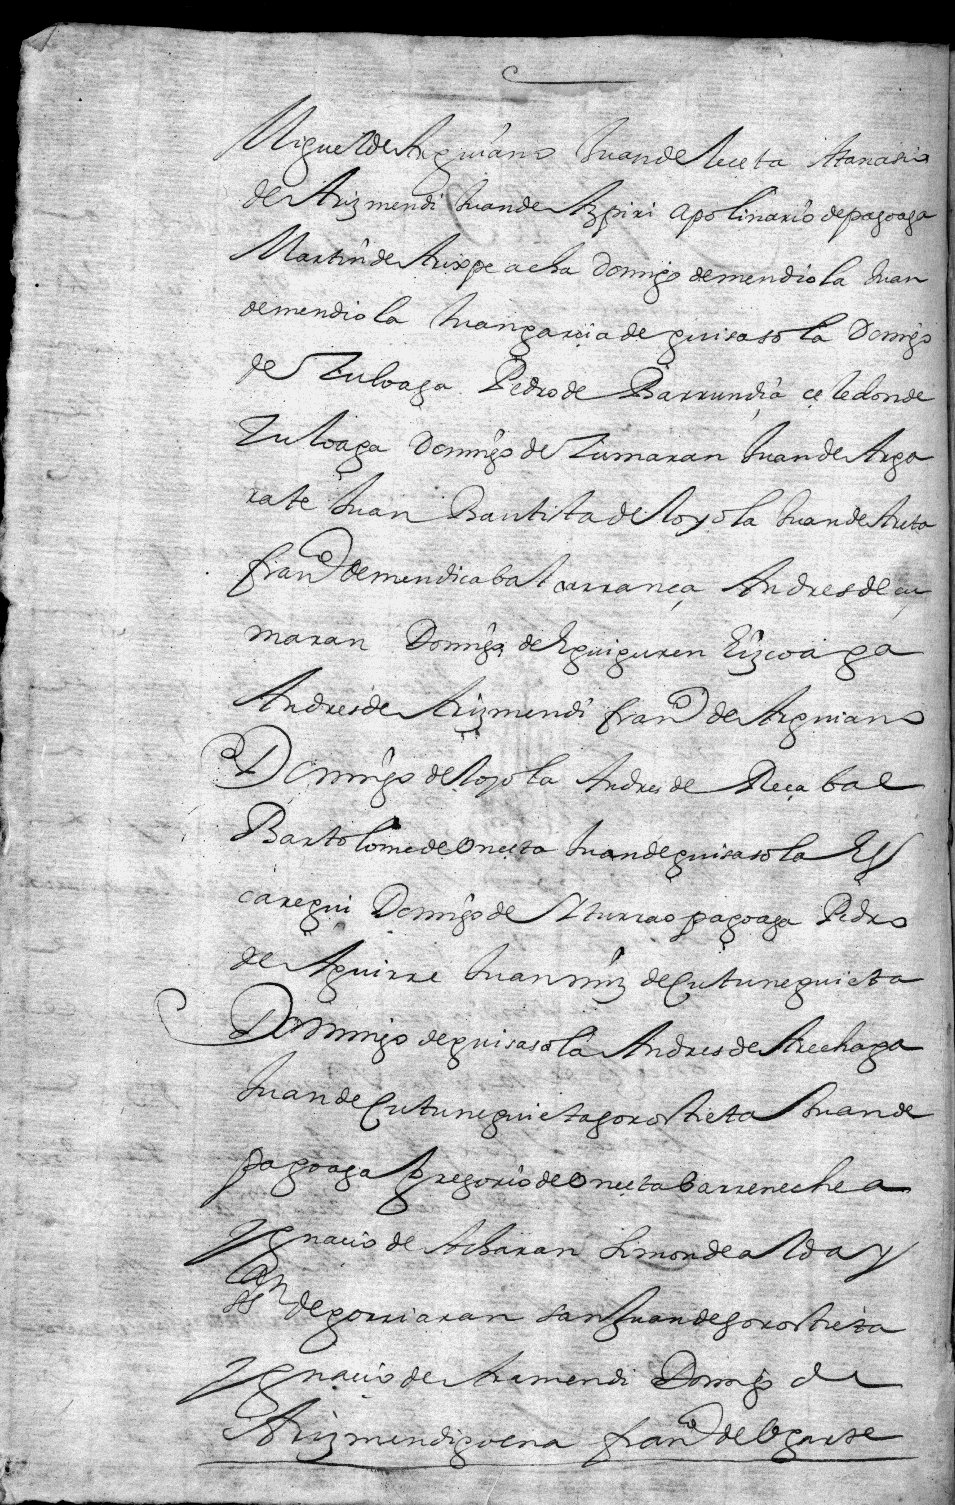 Miguel de Arguiano Juan de Leçeta Atanasio
de Arizmendi Juan de Azpiri Apolinario de pagoaga
Martin de Arixpeacha Domigo de mendiola Juan
de mendiola Juan garçia de guisasola Domigo
de Zuloaga Pedro de Barrundia çeledon de
Zuloaga Domigo de Zumaran Juan de Arga
rate Juan Bautista de Loyola Juan de Areta
fran.co de mendicabal carrança Andres de çu
maran Domigo de Eguiguren Eizcoaga
Andres de Arizmendi fran.co de Arguiano
Domigo de Loyola Andres de Reçabal
Bartolome de Oneeta Juan de guisasola
caregui Domigo de Iturrao pagoaga Pedro
de Aguirre Juan mrz de Cutuneguieta
Domingo de guisasola Andres de Arechaga
Juan de Cutuneguieta gorostieta Juan de
pagoaga gregorio de Oneeta barrenechea
Ygnacio de Acharan Simon de Alday
de gorriaran San Juan de gorostieta
Ygnacio de Aramendi Domigo de
Arizmendi goena fran.co de Ugarte